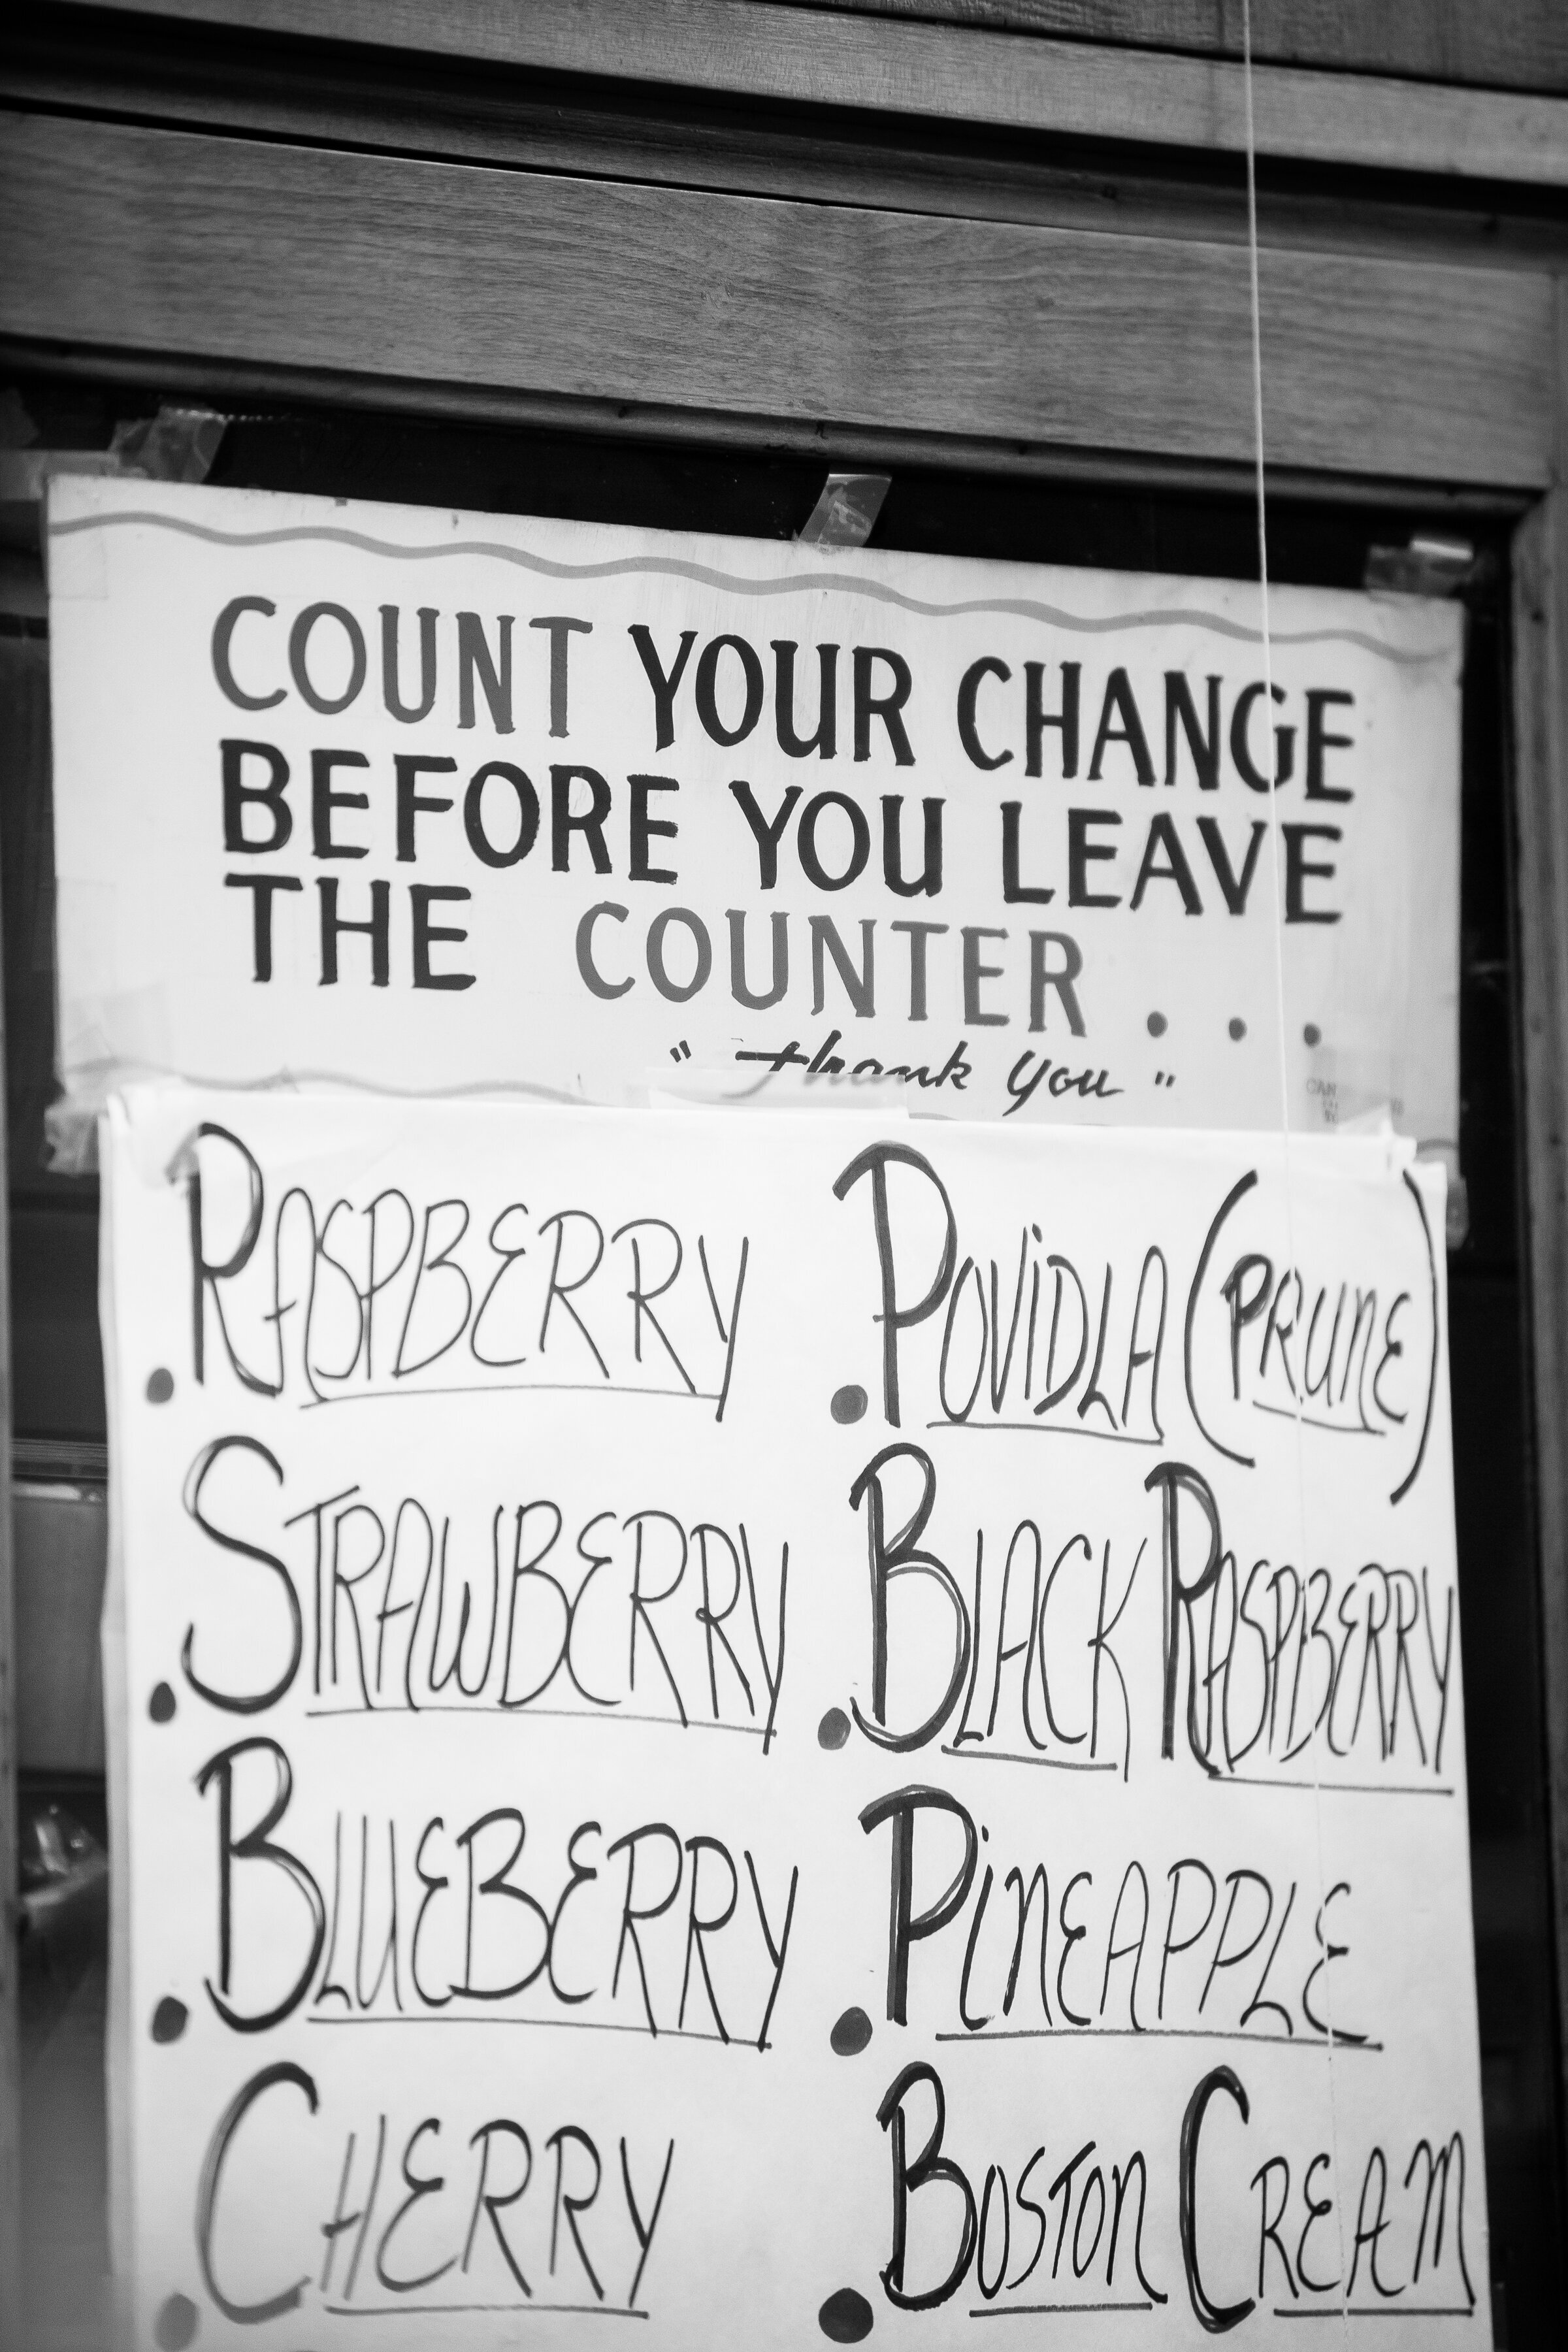 COUNT YOUR CHANGE
BEFORE YOU LEAVE
THE COUNTER . . .
" thank you "
. RASPBERRY
. STRAWBERRY
. BLUEBERRY
. CHERRY
. POVIDLA (PRUNE)
. BLACK RASPBERRY
. PINEAPPLE
. BOSTON CREAM